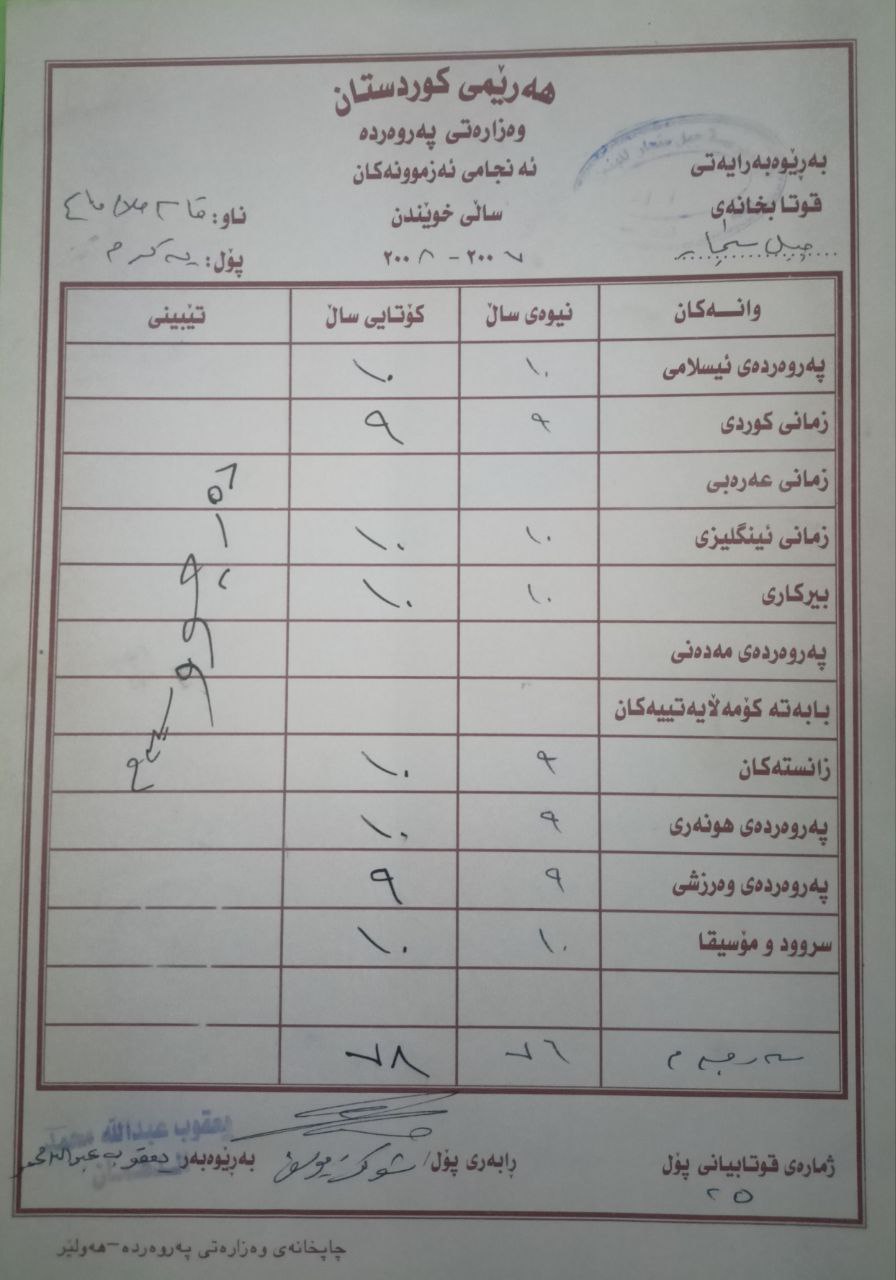 هەرێمی کوردستان
وەزارەتی پەروەردە
ئەنجامی ئەزموونەکان
ساڵی خوێندن
٢٠٠٧ - ٢٠٠٨
بەڕێوەبەرایەتی
قوتابخانەی
جبل سنجار
ناو:
پۆل: یەکەم
وانــەکان نیوەی ساڵ کۆتایی ساڵ تێبینی
پەروەردەی ئیسلامی ١٠ ١٠
زمانی کوردی ٩ ٩
زمانی عەرەبی
زمانی ئینگلیزی ١٠ ١٠
بیرکاری ١٠ ١٠
پەروەردەی مەدەنی
بابەتە کۆمەڵایەتییەکان
زانستەکان ٩ ١٠
پەروەردەی هونەری ٩ ١٠
پەروەردەی وەرزشی ٩ ٩
سروود و مۆسیقا ١٠ ١٠
سەرجەم ٧٦ ٧٨
ژمارەی قوتابیانی پۆل
٢٥
ڕابەری پۆل/
بەڕێوەبەر یعقوب عبدالله محمد
یعقوب عبدالله محمد
چاپخانەی وەزارەتی پەروەردە-هەولێر